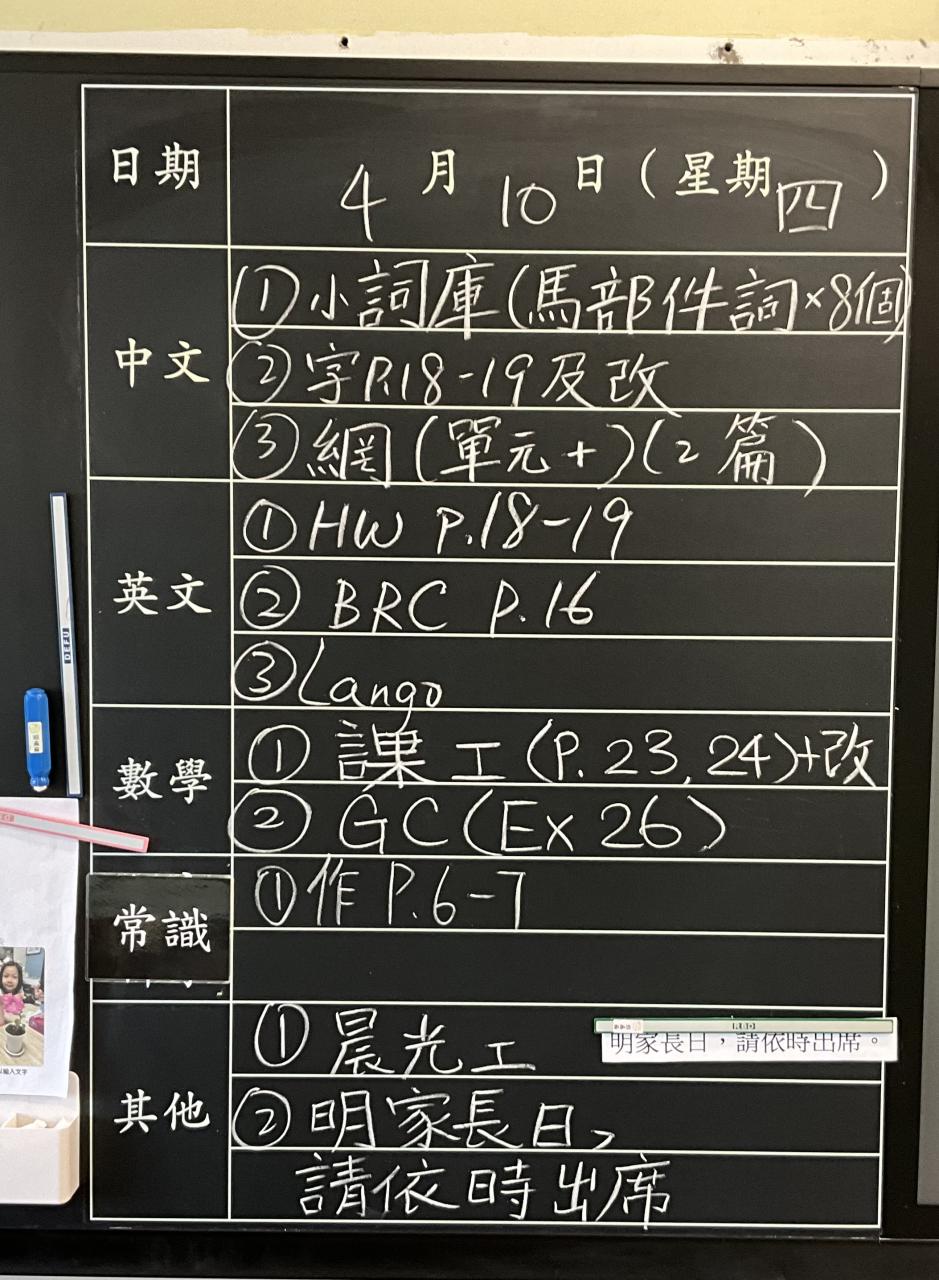 日期 4月10日(星期四)
中文 ①小詞庫(馬部件詞×8個)
②字P.18-19及改
③網(單元+)(2篇)
英文 ①HW P.18-19
②BRC P.16
③Lango
數學 ①課工(P.23,24)+改
②GC(Ex 26)
常識 ①作P.6-7
其他 ①晨光工
明家長日，請依時出席。
②明家長日，
請依時出席
DEFU